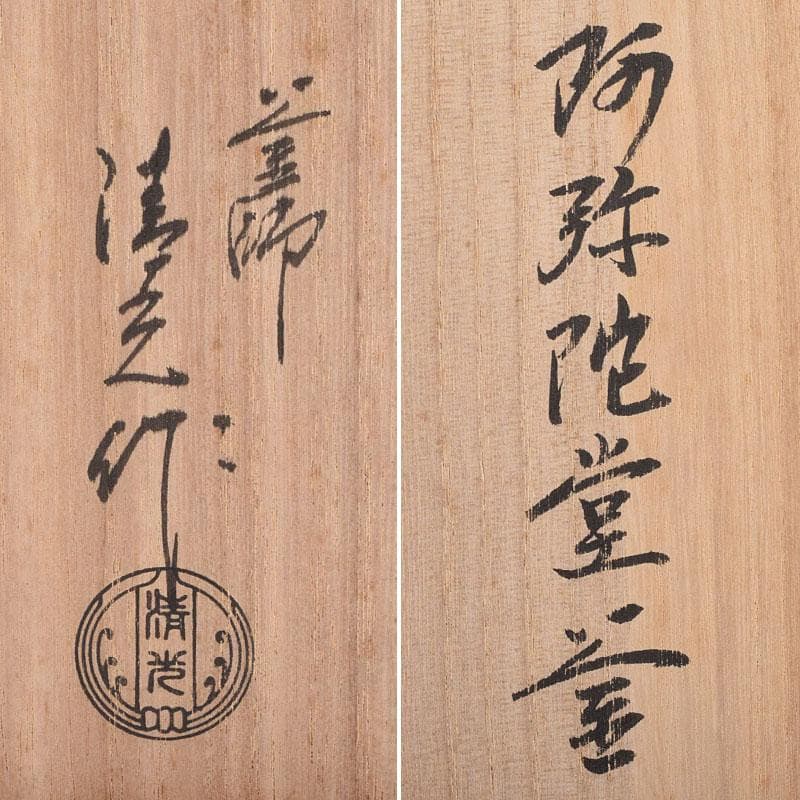 阿弥陀堂釜
釜師
清光作
清光